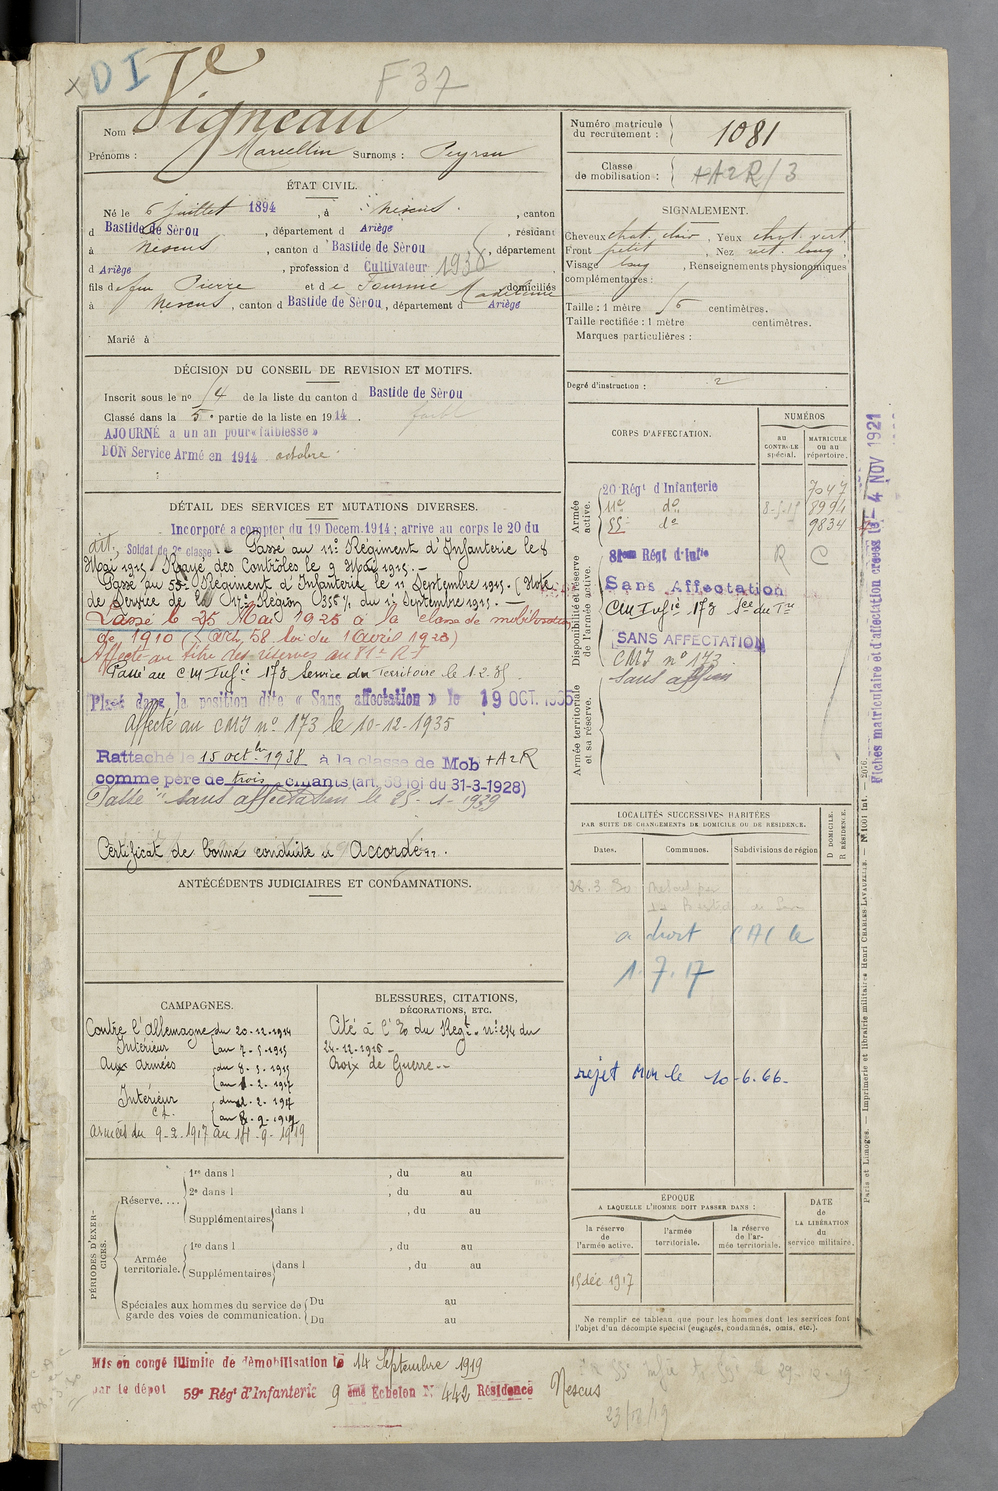 DI
F 37
Nom : Vigneau
Prénoms : Marcellin Surnoms : Peyrou
ÉTAT CIVIL.
Né le 6 juillet 1894, à Nescus, canton
d Bastide de Sérou, département d Ariège, résidant
à Nescus, canton d Bastide de Sérou, département
d Ariège, profession d Cultivateur
fils de feu Pierre et de Madeleine domiciliés
à Nescus, canton d Bastide de Sérou, département d Ariège
Marié à
DÉCISION DU CONSEIL DE REVISION ET MOTIFS.
Inscrit sous le no 14 de la liste du canton d Bastide de Sérou
Classé dans la 5e partie de la liste en 1914.
AJOURNÉ à un an pour « faiblesse »
BON Service Armé en 1914 octobre
DÉTAIL DES SERVICES ET MUTATIONS DIVERSES.
Incorporé a compter du 19 Decem. 1914 ; arrive au corps le 20 du
dit, Soldat de 2e classe Passé au 11e Régiment d'Infanterie le 8
Mai 1915 Rayé des Contrôles le 9 Mai 1915.
Passé au 55e Régiment d'Infanterie le 11 Septembre 1915. (Note
de Service de la 17e Région 355 % du 12 Septembre 1915.
Passé le 25 Mai 1925 à la classe de mobilisation
de 1910 (Art. 58 loi du 1 avril 1923)
Affecté au titre des réserves au 81e RI
Passé au CM Infie 173 Service du Territoire le 1.2.35
Placé dans la position dite « Sans affectation » le 19 OCT. 1935
Affecté au CMI no 173 le 10-12-1935
Rattaché le 15 octbre 1938 à la classe de Mob +A2R
comme père de trois enfants (art. 58 loi du 31-3-1928)
Passé "sans affectation" le 25-1-1939
Certificat de bonne conduite "Accordé".
ANTÉCÉDENTS JUDICIAIRES ET CONDAMNATIONS.
CAMPAGNES.
Contre l'Allemagne du 20-12-1914
Intérieur au 7-5-1915
Aux Armées du 8-5-1915
au 1-2-1917
Intérieur du 2-2-1917
C.A. au 8-9-1917
Armées du 9-2-1917 au 14-9-1919
BLESSURES, CITATIONS,
DÉCORATIONS, ETC.
Cité à l'O du Régt no 254 du
24-12-1916
Croix de Guerre
PÉRIODES D'EXERCICES.
Réserve.... 1re dans l , du au
2e dans l , du au
Supplémentaires dans l , du au
Armée territoriale. 1re dans l , du au
Supplémentaires dans l , du au
Spéciales aux hommes du service de garde des voies de communication. Du au
Du au
Mis en congé illimité de démobilisation le 14 Septembre 1919
par le dépot 59e Régt d'Infanterie 9 ème Echelon No 442 Résidence Nescus
23/12/19
Numéro matricule
du recrutement : 1081
Classe
de mobilisation : +A2R/3
SIGNALEMENT.
Cheveux chat. clair, Yeux chat. vert
Front petit, Nez rect. long,
Visage long, Renseignements physionomiques
complémentaires :
Taille : 1 mètre centimètres.
Taille rectifiée : 1 mètre centimètres.
Marques particulières :
Degré d'instruction : 2
CORPS D'AFFECTATION.
NUMÉROS
au
CONTRÔLE
spécial.
MATRICULE
ou au
répertoire.
Armée
active.
20 Régt d Infanterie 7047
11e do 8994
55 do 9834
Disponibilité et réserve
de l'armée active.
81eme Régt d'Infie R C
Sans Affectation
CM Infie 173 Sce du Tre
SANS AFFECTATION
CMI no 173
Sans affon
Armée territoriale
et sa réserve.
LOCALITÉS SUCCESSIVES HABITÉES
PAR SUITE DE CHANGEMENTS DE DOMICILE OU DE RÉSIDENCE.
Dates. Communes. Subdivisions de région
D DOMICILE.
R RÉSIDENCE.
a droit CAC le
1.7.17
rejet le 10-6-66.
ÉPOQUE
A LAQUELLE L'HOMME DOIT PASSER DANS :
la réserve
de
l'armée active.
l'armée
territoriale.
la réserve
de l'ar-
mée territoriale.
DATE
de
LA LIBÉRATION
du
service militaire.
15 déc 1917
Ne remplir ce tableau que pour les hommes dont les services font
l'objet d'un décompte spécial (engagés, condamnés, omis, etc.).
Fiches matriculaire et d'affectation créées le 4 NOV 1921
Paris et Limoges. — Imprimerie et librairie militaires Henri CHARLES-LAVAUZELLE. — No 1001 Int. — 2076.